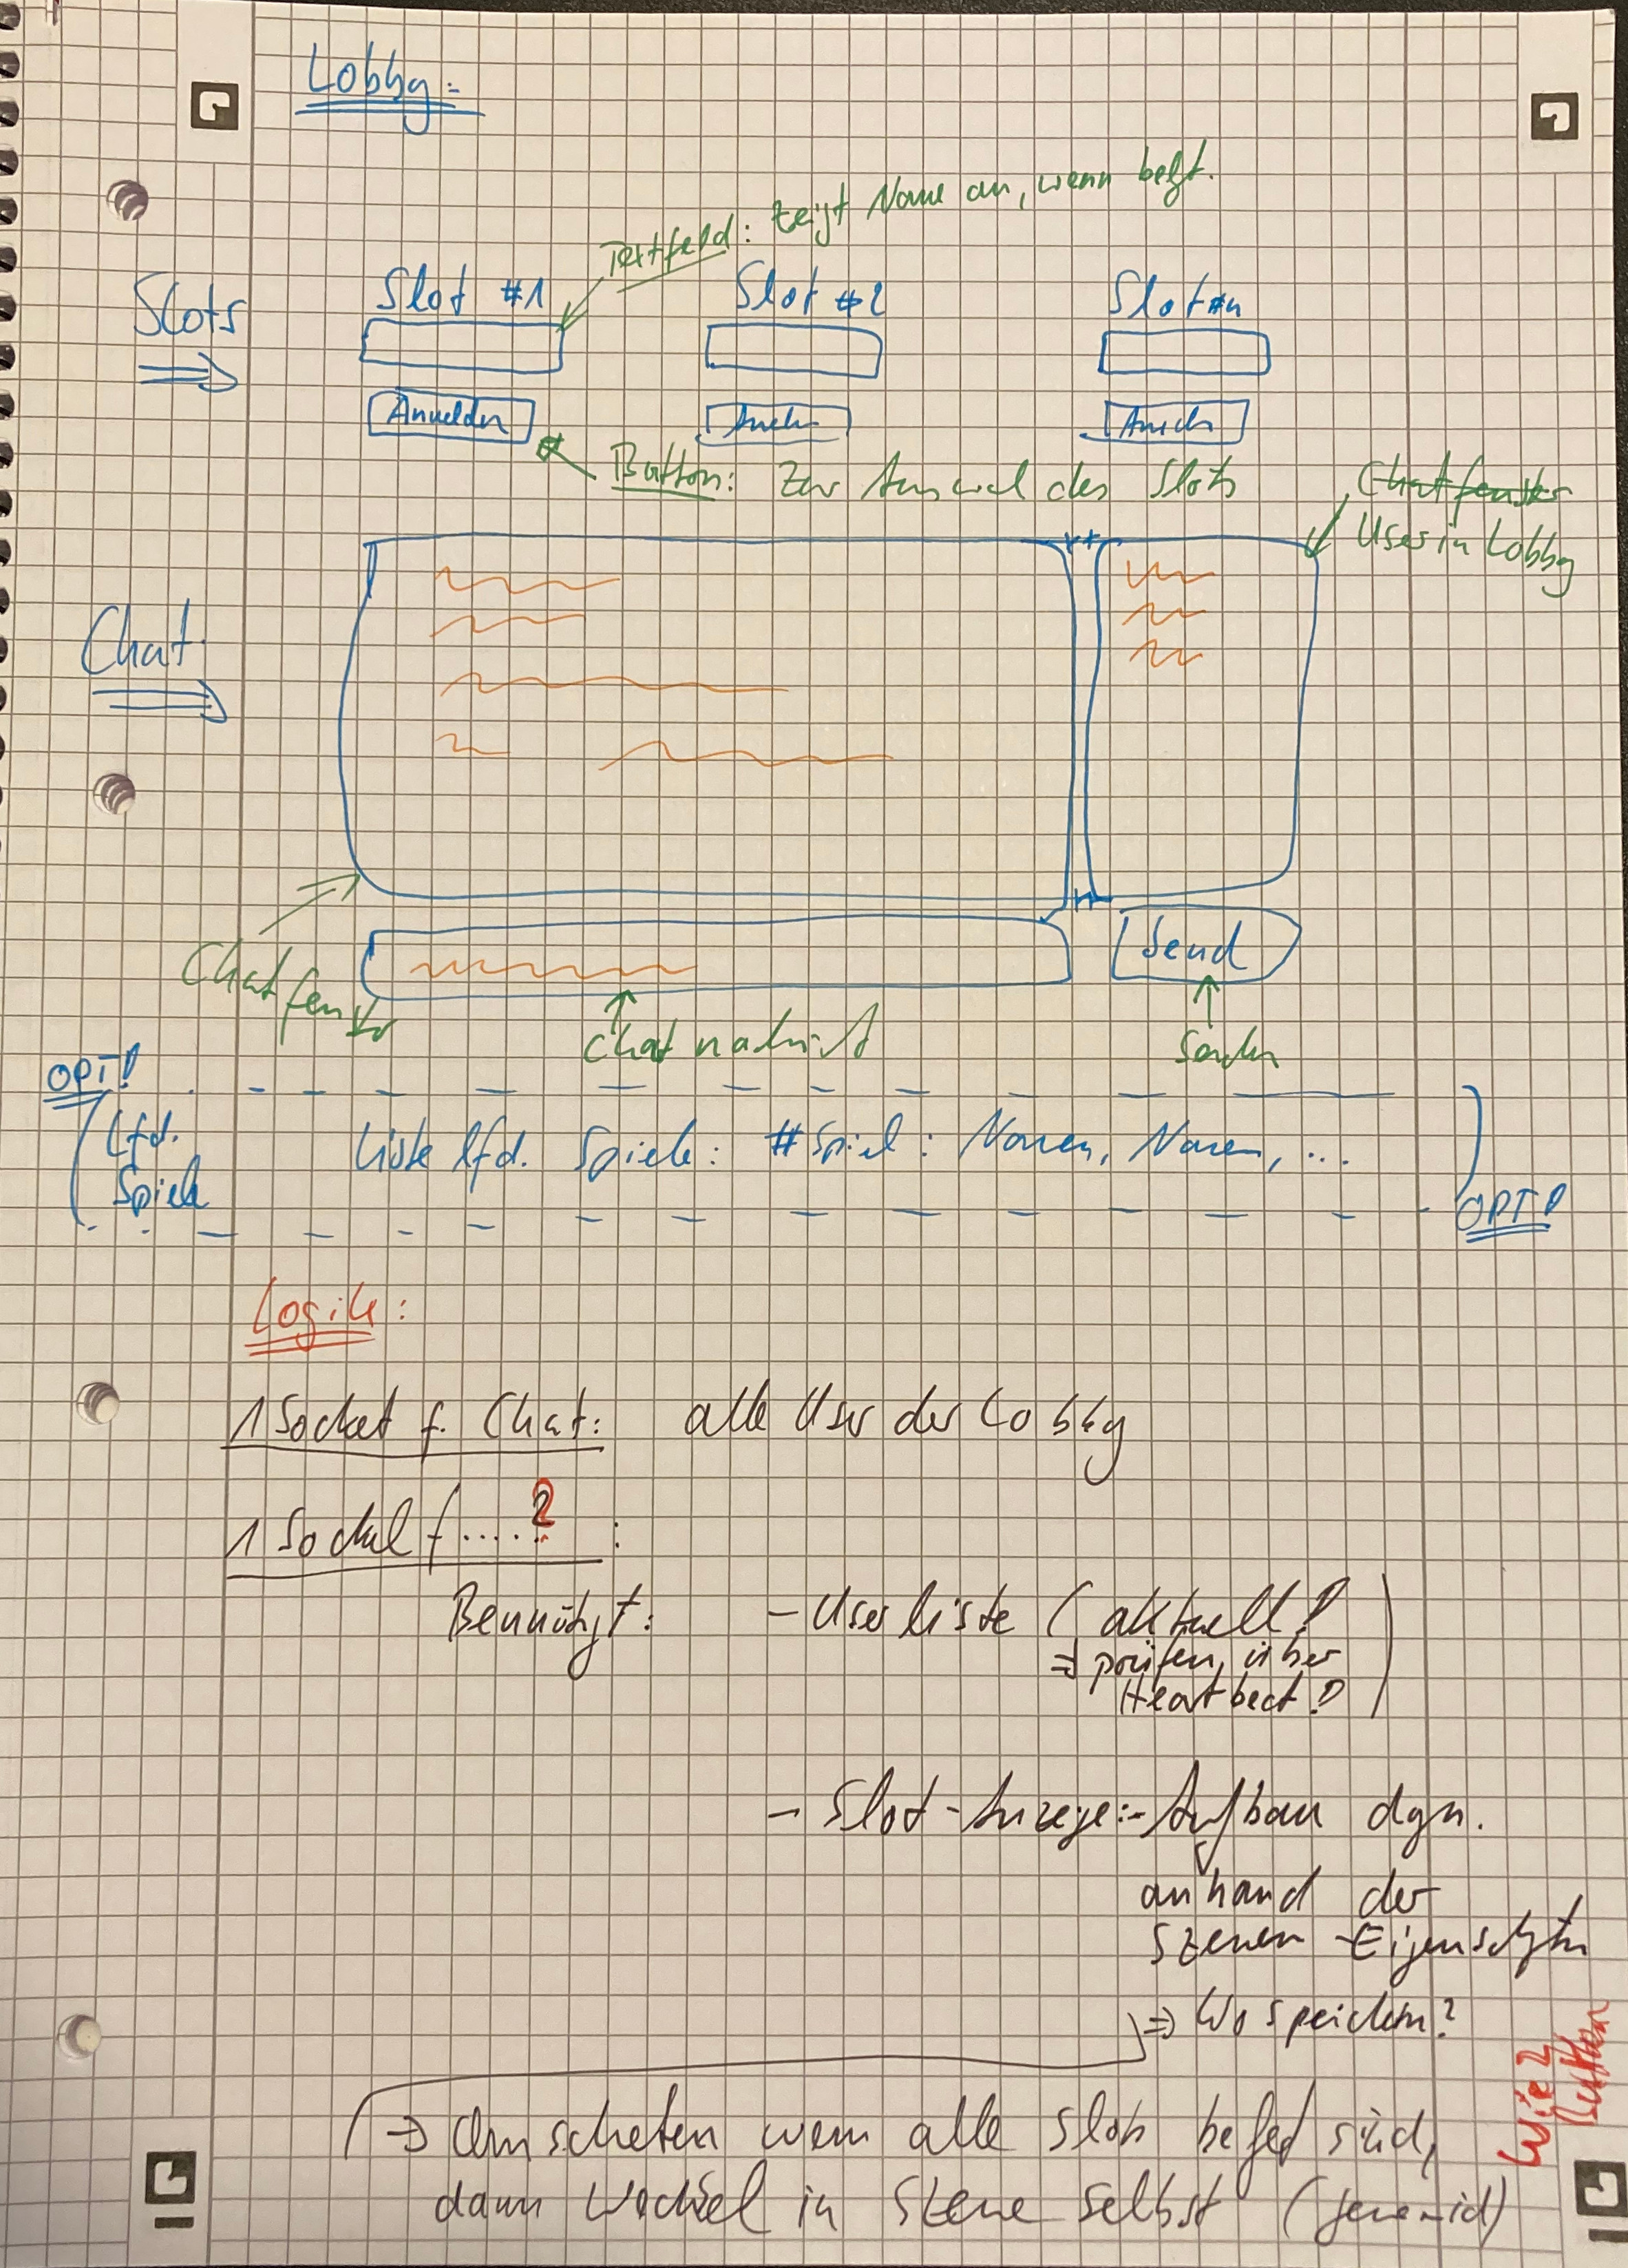 Lobby:
Textfeld: zeigt Name an, wenn belgt.
Slots
Slot #1
Slot #2
Slot #n
Anmelden
Button: Zur Auswal des Slots
Chatfenster
User in Lobby
Chat
Chatfenster
Send
Chatnachricht
Senden
OPT!
Lfd.
Spiele
Liste lfd. Spiele: #Spiel: Namen, Namen, ...
OPT!
Logik:
1 Socket f. Chat: alle User der Lobby
1 Socket f.....? :
Bennötigt: - Userliste (aktuell!
⇒ prüfen über
Heartbeat!)
- Slot-Anzeige: - Aufbau dyn.
anhand der
Szenen-Eigenschaften
⇒ Wo speichern?
⇒ Umschalten wenn alle Slots belegt sind,
dann Wechsel in Szene selbst (generid)
Wie?
Button